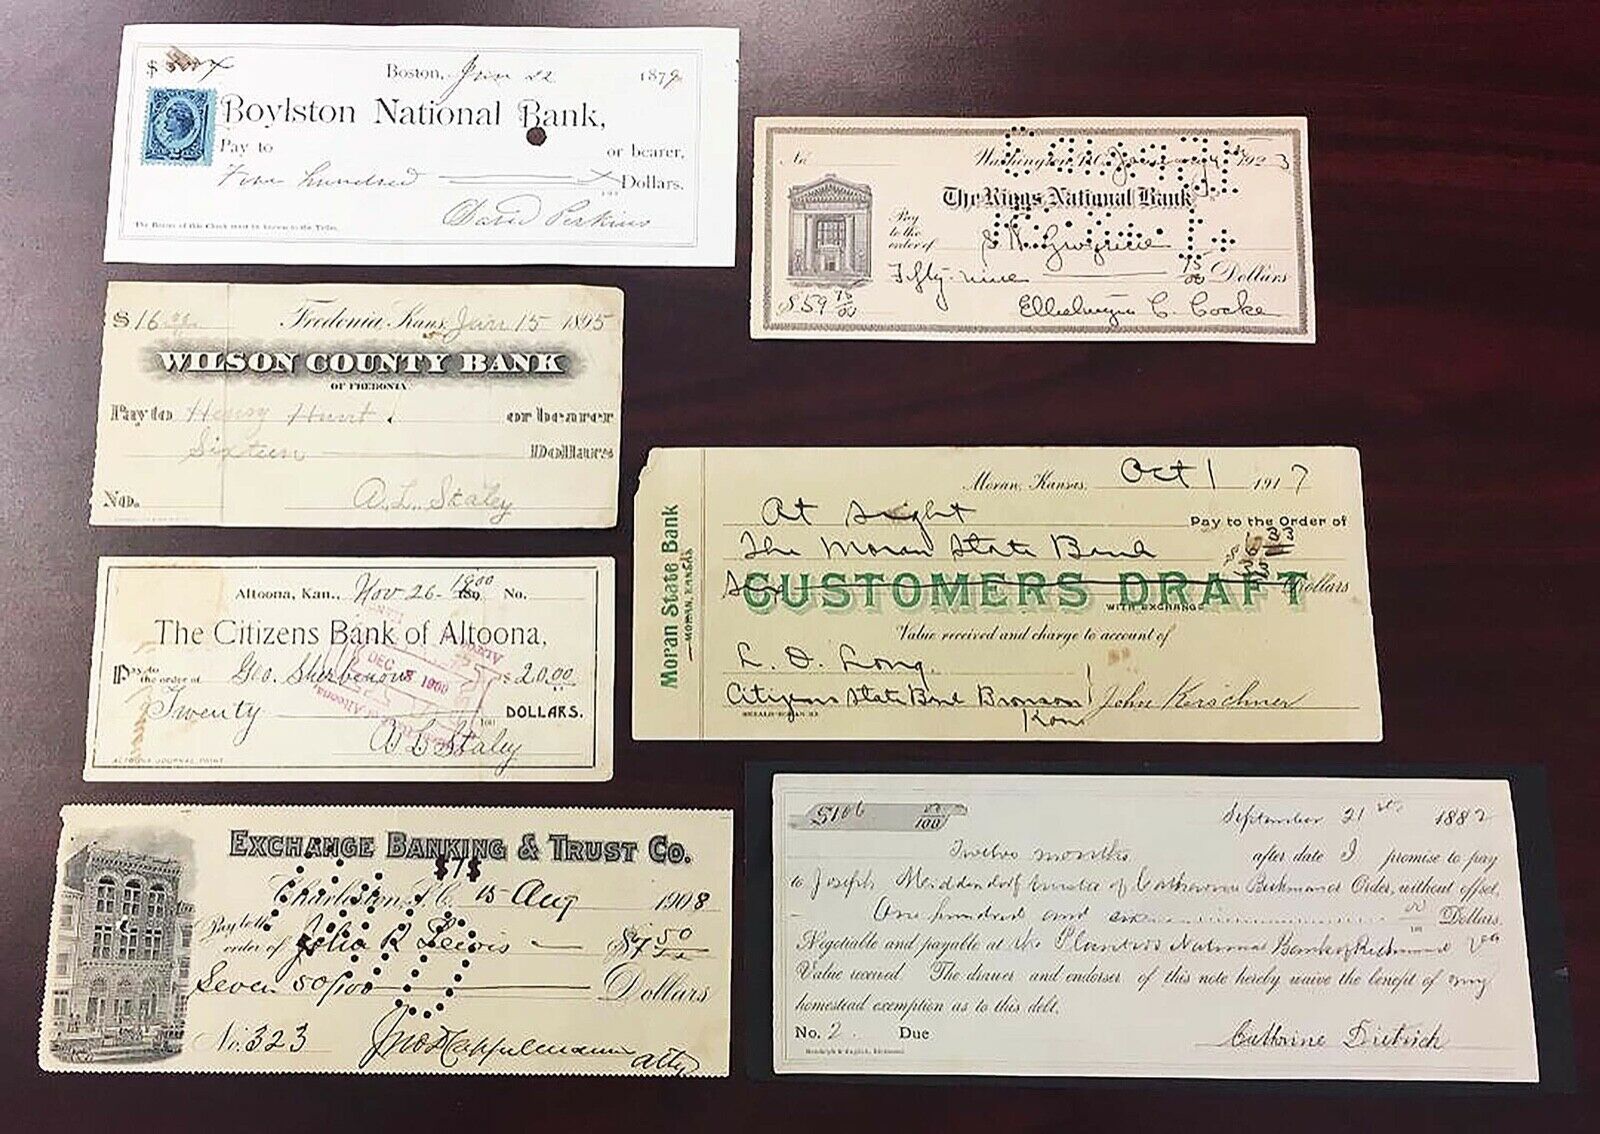 Boston, Jan 22 1879
Boylston National Bank,
Pay to or bearer,
hundred Dollars.
David Perkins
The Bearer of this Check must be known to the Teller.
$16
Fredonia, Kans. Jan 15 1895
WILSON COUNTY BANK
OF FREDONIA
Pay to Henry Hunt or bearer
Sixteen Dollars
No. A. L. Staley
Altoona, Kan., Nov 26 - 1900 189 No.
The Citizens Bank of Altoona,
Pay to the order of Geo. Sherbenou $20.00
DEC 8 1900
Twenty 100 DOLLARS.
A L Staley
ALTOONA JOURNAL PRINT
EXCHANGE BANKING & TRUST CO.
Charleston, S.C. 15 Aug 1908
Pay to the order of Julia R Lewis $7 50
Seven 50/100 Dollars
No. 323 Jno D Cappelmann atty
No. Washington, D.C. January 1923
The Riggs National Bank
Pay to the order of
Fifty-nine 15/00 Dollars
$59 15/00 C. Cocke
Moran State Bank
MORAN, KANSAS
Moran, Kansas, Oct 1 1917
At Sight Pay to the Order of
The Moran State Bank
CUSTOMERS DRAFT
Dollars
WITH EXCHANGE
Value received and charge to account of
L. O. Long.
Citizens State Bank Bronson Kans John Kerschner
$106 00/100 September 21st 1882
Twelve months after date I promise to pay
to Joseph Middendorf trustee of Catharine Order, without offset,
One hundred and 00/100 Dollars
Negotiable and payable at the Planters National Bank of Richmond Va
Value received The drawer and endorser of this note hereby waive the benefit of my
homestead exemption as to this debt.
No. 2. Due Cathrine Dietrich
Randolph & English, Richmond